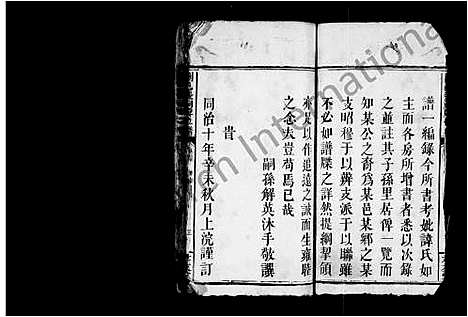 譜一編錄今所書考妣諱氏如
主而各房所增書者悉以次錄
之並註其子孫里居俾一覽而
知某公之裔爲某邑某鄉之某
支昭穆于以辨支派于以聯雖
不必如譜牒之詳然提綱挈領
亦某以作追遠之誠而生雍睦
之念夫豈苟焉已哉
嗣孫解英沐手敬譔
旹
同治十年辛未秋月上浣謹訂
International